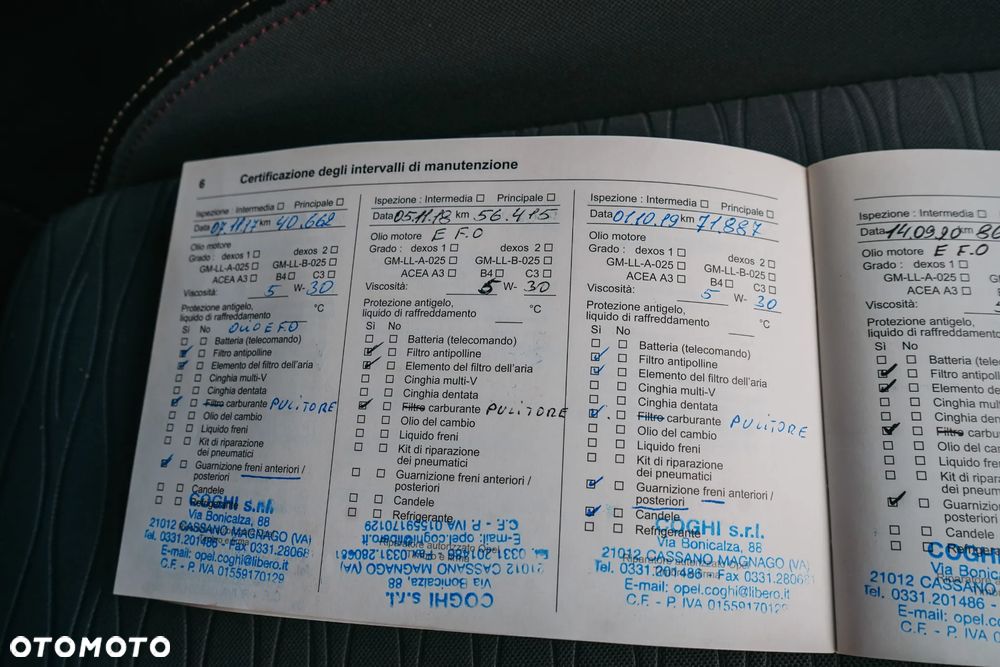 6 Certificazione degli intervalli di manutenzione
Ispezione : Intermedia ☐ Principale ☐
Data 07.11.17 km 40.662
Olio motore
Grado : dexos 1 ☐ dexos 2 ☐
GM-LL-A-025 ☐ GM-LL-B-025 ☐
ACEA A3 ☐ B4 ☐ C3 ☐
Viscosità: 5 W- 30
Protezione antigelo,
liquido di raffreddamento °C
Sì No OLIO E F.O
Batteria (telecomando)
Filtro antipolline
Elemento del filtro dell'aria
Cinghia multi-V
Cinghia dentata
Filtro carburante PULITORE
Olio del cambio
Liquido freni
Kit di riparazione
dei pneumatici
Guarnizione freni anteriori /
posteriori
Candele
Refrigerante
COGHI s.r.l.
Via Bonicalza, 88
21012 CASSANO MAGNAGO (VA)
Tel. 0331.201486 - Fax 0331.280681
E-mail: opel.coghi@libero.it
C.F. - P. IVA 01559170129
Ispezione : Intermedia ☐ Principale ☐
Data 05.11.18 km 56.415
Olio motore E F.O
Grado : dexos 1 ☐ dexos 2 ☐
GM-LL-A-025 ☐ GM-LL-B-025 ☐
ACEA A3 ☐ B4 ☐ C3 ☐
Viscosità: 5 W- 30
Protezione antigelo,
liquido di raffreddamento °C
Sì No
Batteria (telecomando)
Filtro antipolline
Elemento del filtro dell'aria
Cinghia multi-V
Cinghia dentata
Filtro carburante PULITORE
Olio del cambio
Liquido freni
Kit di riparazione
dei pneumatici
Guarnizione freni anteriori /
posteriori
Candele
Refrigerante
COGHI s.r.l.
Via Bonicalza, 88
21012 CASSANO MAGNAGO (VA)
Tel. 0331.201486 - Fax 0331.280681
E-mail: opel.coghi@libero.it
C.F. - P. IVA 01559170129
Ispezione : Intermedia ☐ Principale ☐
Data 01.10.19 km 71.887
Olio motore
Grado : dexos 1 ☐ dexos 2 ☐
GM-LL-A-025 ☐ GM-LL-B-025 ☐
ACEA A3 ☐ B4 ☐ C3 ☐
Viscosità: 5 W- 30
Protezione antigelo,
liquido di raffreddamento °C
Sì No
Batteria (telecomando)
Filtro antipolline
Elemento del filtro dell'aria
Cinghia multi-V
Cinghia dentata
Filtro carburante PULITORE
Olio del cambio
Liquido freni
Kit di riparazione
dei pneumatici
Guarnizione freni anteriori /
posteriori
Candele
Refrigerante
COGHI s.r.l.
Via Bonicalza, 88
21012 CASSANO MAGNAGO (VA)
Tel. 0331.201486 - Fax 0331.280681
E-mail: opel.coghi@libero.it
C.F. - P. IVA 01559170129
Ispezione : Intermedia ☐
Data 14.09.20 km
Olio motore E F.O
Grado : dexos 1 ☐
GM-LL-A-025 ☐
ACEA A3 ☐
Viscosità:
Protezione antigelo,
liquido di raffreddamento
Sì No
Batteria (teleco
Filtro antipolli
Elemento de
Cinghia mul
Cinghia den
Filtro carbu
Olio del can
Liquido fren
Kit di ripara
dei pneum
Guarnizion
posteriori
Candele
COGHI
Via Bonic
21012 CASSANO
Tel. 0331.201486 -
E-mail: opel.c
C.F. - P. IVA 0
OTOMOTO